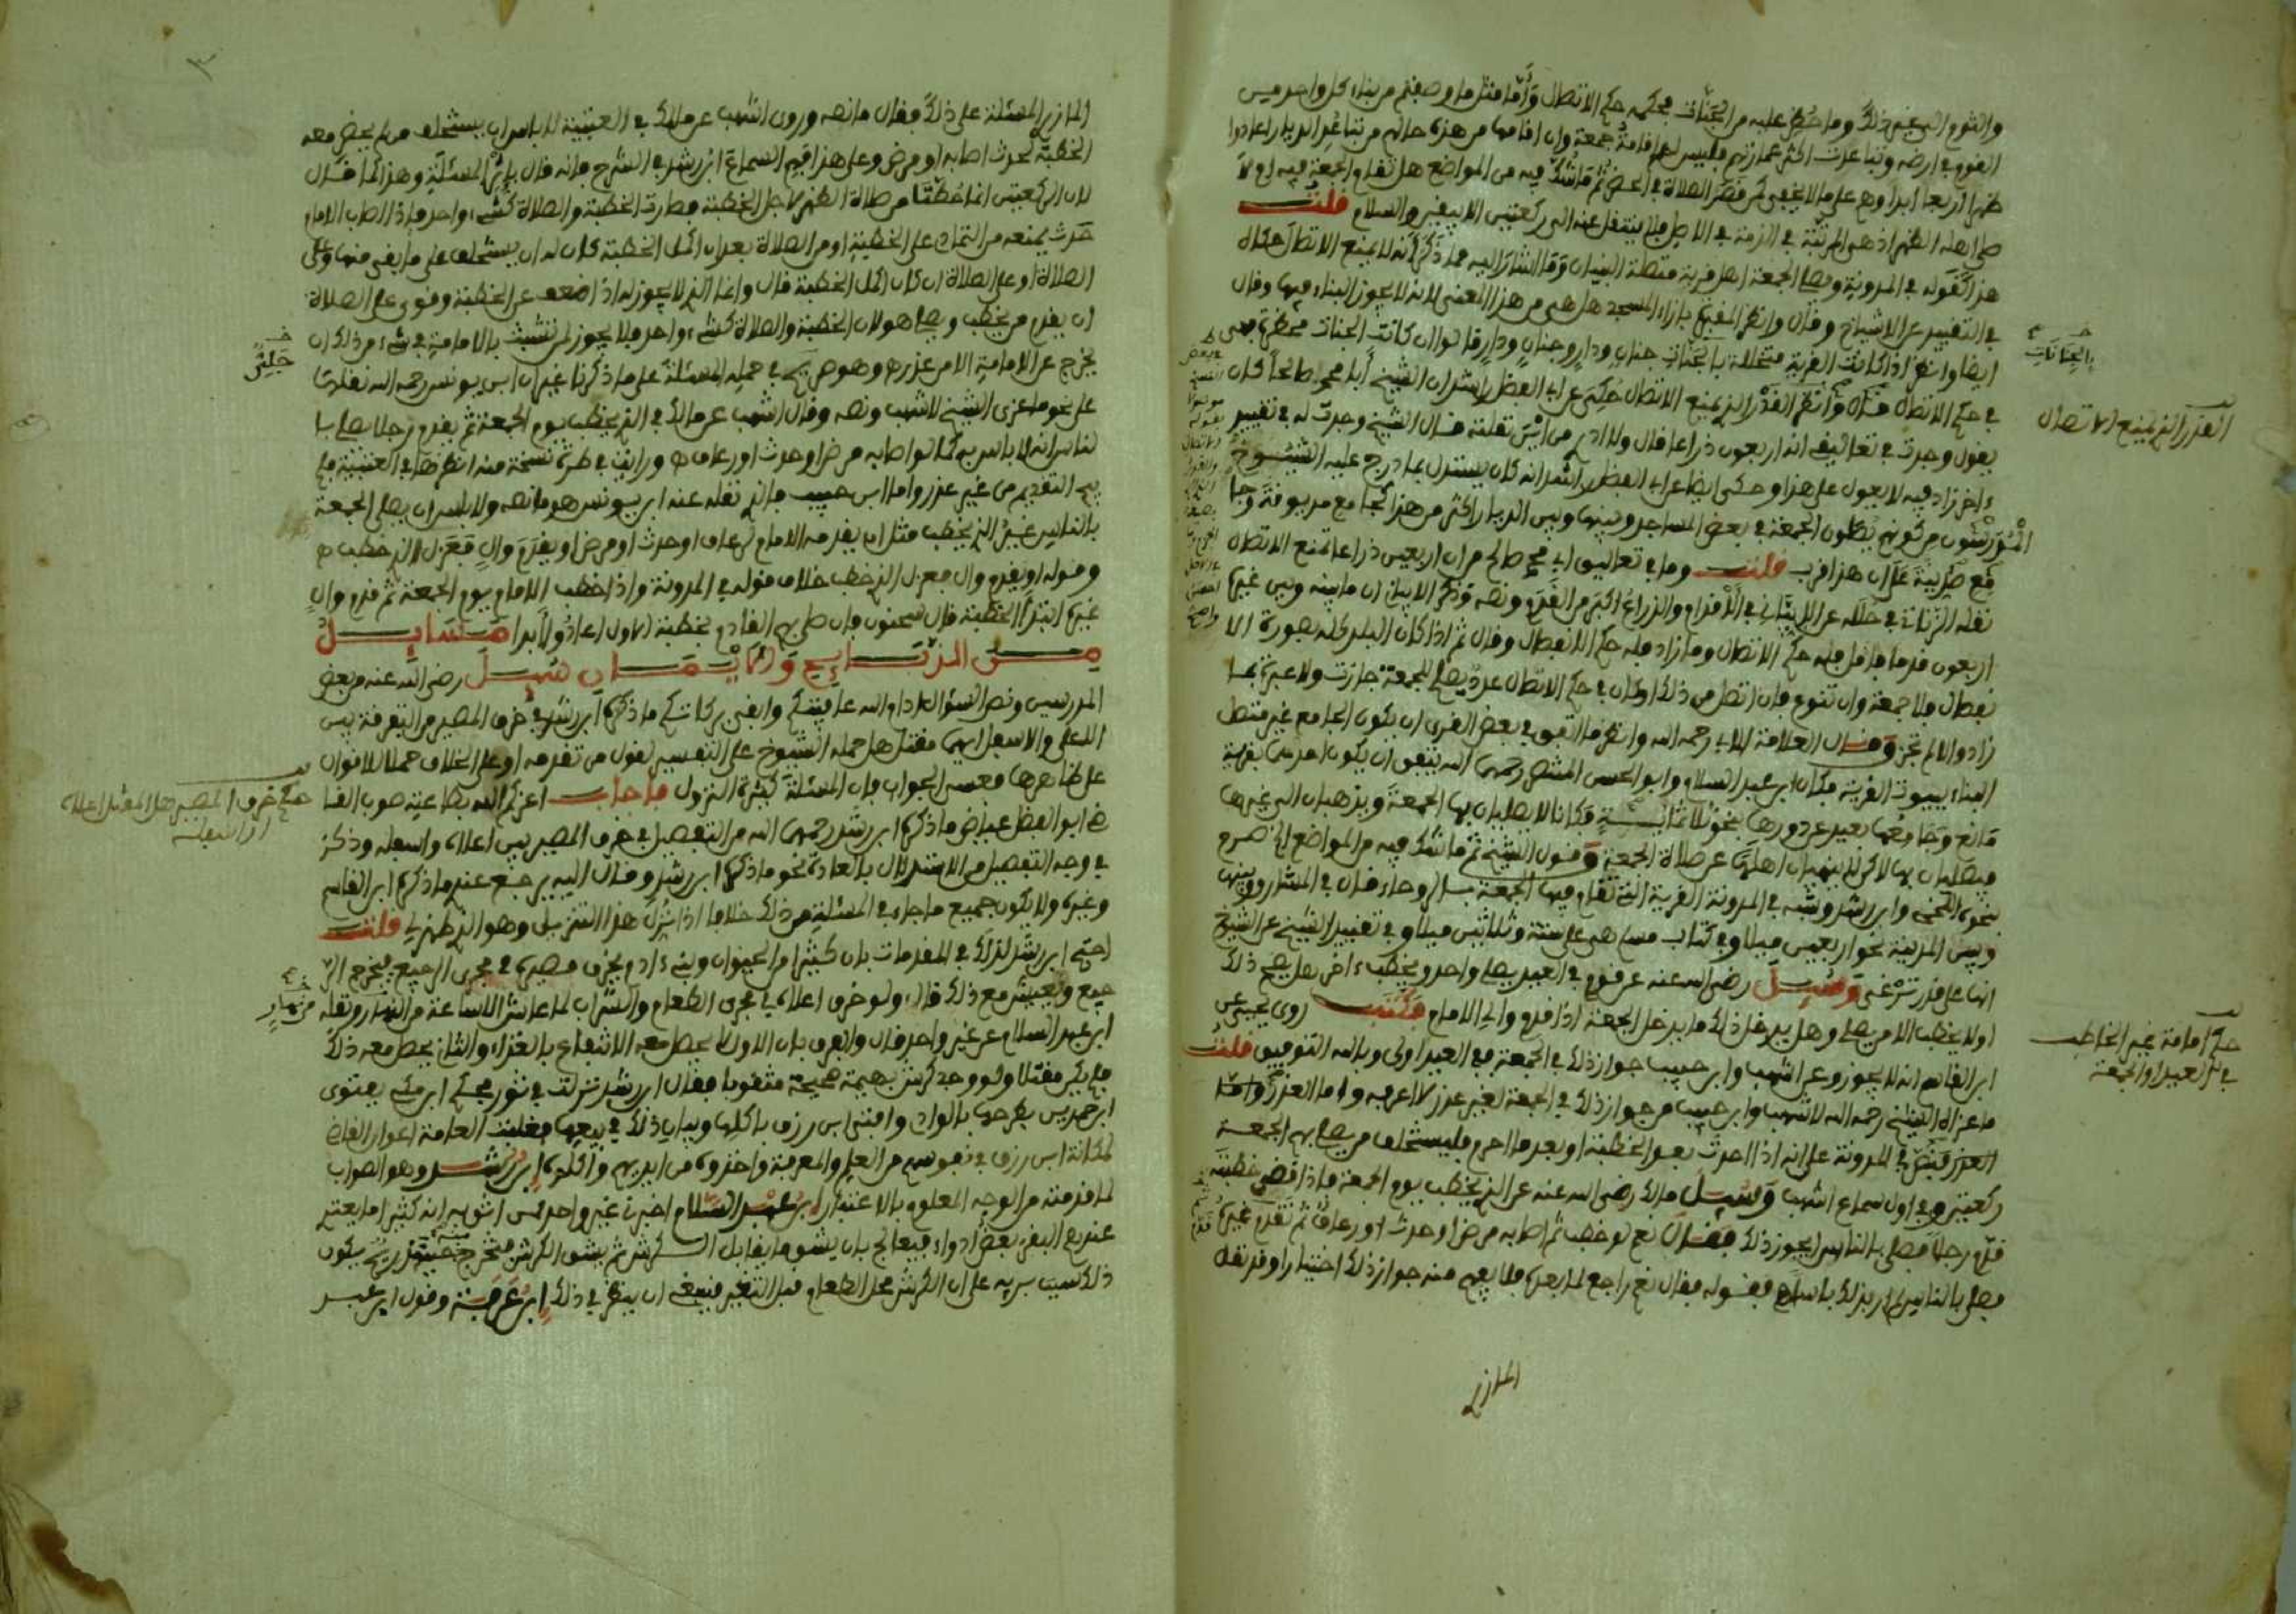 والثوم الى غير ذلك وما حظر عليه من الجنات فحكمه حكم الاتصال وأما مثل ما وصفتم من بناء كل واحد من
القوم في ارضه وتباعدت اكثر عمارتهم فليس لهم اقامة جمعة وان اقامها من هذه حالهم من تباعد الديار اعادوا
ظهرا اربعا ابدا وهم على ما لا يخفى
صلاهم الظهر اذ هي المرتبة في الذمة في الاصل فلا ينتقل عنه الى ركعتين الا بيقين والسلام قلت
هذا كقوله في المدونة ويصلي الجمعة اهل قرية متصلة البنيان وما اشار اليه مما ذكر انه لا يمنع الاتصال حكاه
في التقييد عن الاشياخ وقال وانظر المقبرة بازاء المسجد هل هي من هذا المعنى لانه لا يجوز البناء فيها وقال
ايضا وانظر اذا كانت القرية متخللة بالجنات جنان ودار وجنان ودار قالوا ان كانت الجنات محظرة فهي
في حكم الاتصال قال وانظر القدر الذي يمنع الاتصال حكي عن ابي الفضل راشد ان الشيخ أبا محمد صالحا كان
يقول وجدت في تعاليقي انه اربعون ذراعا قال ولا ادري من أين نقلته قال الشيخ وجدت له في تقييد
ءاخر زاد فيه لا يعول على هذا وحكى ايضا عن ابي الفضل راشد انه كان يستدل بما درج عليه الشيوخ
المدرسون من كونهم يصلون الجمعة في بعض المساجد وبينها وبين الديار اكثر من هذا كجامع مديونة وجا
مع طريانة على ان هذا قرب قلت وما في تعاليق ابي محمد صالح من ان اربعين ذراعا تمنع الاتصال
نقله الزناتي في حلله عن الابياني في الاقدام والذراع اكبر من القدم ونصه وذكر الابياني ان ما بينه وبين غيره
اربعون قدما فاقل فله حكم الاتصال وما زاد فله حكم الانفصال وقال ثم اذا كان البلد كله بصورة الا
نفصال فلا جمعة وان تنوع فان اتصل من ذلك او كان في حكم الاتصال عدد يصلح للجمعة جازت ولا عبرة بما
زاد والا لم تجز وقال العلامة الابي رحمه الله وانظر ما اتفق في بعض القرى ان يكون الجامع غير متصل
البناء ببيوت القرية فكان ابن عبد السلام وابو الحسن المنتصر رحمهما الله يتفق ان يكون احدهما بقرية
مانع وجامعها بعيد عن دورها بنحو ثلاثمائة فكانا لا يصليان بها الجمعة ويذهبان الى غيرها
فيصليان بها لكن لا ينهيان اهلها عن صلاة الجمعة وقول الشيخ ثم ما شك فيه من المواضع الخ صرح
بنحوه اللخمي وابن رشد وشبه في المدونة القرية التي تقام فيها الجمعة بالروحاء قال في المشارق وبينها
وبين المدينة نحو اربعين ميلا وفي كتاب مسلم هي على ستة وثلاثين ميلا وفي تقييد الشيخ عن الشيخ
انها على قدر ترغى وسئل رضي الله عنه عن قوم في العيد يصلي واحد ويخطب ءاخر هل يصح ذلك
او لا يخطب الا من يصلي وهل يدخل ذلك ما يدخل الجمعة اذا قدم والي الامام فكتب روى يحيى عن
ابن القاسم انه لا يجوز وعن اشهب وابن حبيب جواز ذلك في الجمعة ففي العيد اولى وبالله التوفيق قلت
ما عزاه الشيخ رحمه الله لاشهب وابن حبيب من جواز ذلك في الجمعة لغير عذر لا اعرفه واما العذر واما
العذر فنص في المدونة على انه اذا احدث بعد الخطبة او بعد ما احرم فليستخلف من يصلي بهم الجمعة
ركعتين وفي اول سماع اشهب وسئل مالك رضي الله عنه عن الذي يخطب يوم الجمعة فاذا قضى خطبته
قدم رجلا فصلى بالناس ايجوز ذلك فقال نعم لو خطب ثم اصابه مرض او حدث او رعاف ثم تقدم غيره
فصلى بالناس لم ار بذلك باسا فقوله فقال نعم راجع لما بعده فلا يفهم منه جواز ذلك اختيارا وقد نقله
المازري
بالجنانات
القدر الذي يمنع الاتصال
حكم امامة غير الخاطب
في العيد او الجمعة
٣
المازري المسئلة على ذلك فقال ما نصه وروى اشهب عن مالك في العتبية لا باس ان يستخلف من لم يحضر معه
الخطبة لحدث اصابه او مرض وعلى هذا فهم السماع ابن رشد في الشرح فانه قال باثر المسئلة وهذا كما قال
لان الركعتين انما حطتا من صلاة الظهر لاجل الخطبة فصارت الخطبة والصلاة كشيء واحد فاذا اصاب الامام
حدث يمنعه من التمادي على الخطبة او من الصلاة بعد ان اكمل الخطبة كان له ان يستخلف على ما بقي منها وعلى
الصلاة او على الصلاة ان كان اكمل الخطبة قال وانما الذي لا يجوز له اذا ضعف عن الخطبة وقوي على الصلاة
ان يقدم من يخطب ويصلي هو لان الخطبة والصلاة كشيء واحد فلا يجوز لمن تشبث بالامامة في شيء من ذلك ان
يخرج عن الامامة الا من عذر وهو صريح في حمله المسئلة على ما ذكرنا غير ان ابن يونس رحمه الله نقلها
على نحو ما عزى الشيخ لاشهب ونصه وقال اشهب عن مالك في الذي يخطب يوم الجمعة ثم يقدم رجلا يصلي با
لناس انه لا باس به كما لو اصابه مرض او حدث او رعاف ورايت في طرة نسخة منه انظر هذا في العتبية
التقديم من غير عذر واما ابن حبيب فالذي نقله عنه ابن يونس هو ما نصه ولا باس ان يصلي الجمعة
بالناس غير الذي يخطب مثل ان يقدمه الامام لرعاف او حدث او مرض او يقدم وال فعزل الذي خطب
وقوله او يقدم وال فعزل الذي خطب خلاف قوله في المدونة واذا خطب الامام يوم الجمعة ثم قدم وال
غيره ابتدا الخطبة قال سحنون فان صلى بهم القادم بخطبة الاول اعادوا ابدا مسايل
من الذبايح والايمان سئل رضي الله عنه من بعض
المدرسين ونص السؤال ادام الله عافيتكم وابقى بركاتكم ما ذكره ابن رشد في خرق المصير من التفرقة بين
الاعلى والاسفل ايهما مقتل هل حمله الشيوخ على التفسير لقول من تقدمه او على الخلاف حملا للاقوال
على ظاهرها فعسى الجواب فان المسئلة كثيرة النزول فاجاب اعزكم الله بطاعته صوب القا
ضي ابو الفضل عياض ما ذكره ابن رشد رحمهما الله من التفصيل في خرق المصير بين اعلاه واسفله وذكر
في وجه التفصيل من الاستدلال بالعادة نحو ما ذكره ابن رشد وقال اليه يرجع عندي ما ذكره ابن القاسم
وغيره ولا يكون جميع ما جاء في المسئلة من ذلك خلافا اذا نزل هذا التنزيل وهو الذي ظهر لي قلت
احتج ابن رشد لذلك في المقدمات بان كثيرا من الحيوان وبني ءادم يجرى مصيره في مجرى الرجيع فيخرج الر
جيع ويعيش مع ذلك قال ولو خرق اعلاه في مجرى الطعام والشراب لما عاش الا ساعة من النهار ونقله
ابن عبد السلام عن غير واحد قال والفرق بان الاول لا يحصل معه الانتفاع بالغذاء والثاني يحصل معه ذلك
فلم يكن مقتلا ولو وجد كرش بهيمة صحيحة مثقوبا فقال ابن رشد نزلت في ثور فحكم ابن مكي بفتوى
ابن حمدين بطرحها بالوادي وافتى ابن رزق باكلها وببيان ذلك في بيعها فغلبت العامة اعوان القاضي
لمكانة ابن رزق في نفوسهم من العلم والمعرفة واخذوه من ايديهم واكلوه ابن رشد وهو الصواب
لما قدمته من الوجه المعلوم بالاعتبار ابن عبد السلام اخبرني غير واحد ممن اثق به انه كثيرا ما يعتري
عندهم البقر بعض ادواء فيعالج بان يشق ما يقابل الكرش ثم يشق الكرش فتخرج منه ريح يكون
ذلك سبب بريه على ان الكرش محل الطعام قبل التغير فينبغي ان ينظر في ذلك ابن عرفة وقول ابن عبد
حكم خرق المصير هل المقتل اعلاه
او اسفله
من نهار